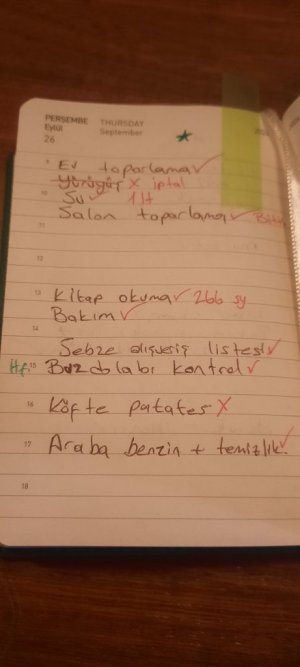 PERŞEMBE THURSDAY
Eylül September
26
9 Ev toparlama ✓
Yürüyüş X iptal
10 Su ✓ 1 lt
Salon toparlama ✓
11
12
13 Kitap okuma ✓ 266 sy
Bakım ✓
14
Sebze alışveriş listesi ✓
Hf. 15 Buzdolabı kontrol ✓
16 Köfte patates X
17 Araba benzin + temizlik. ✓
18